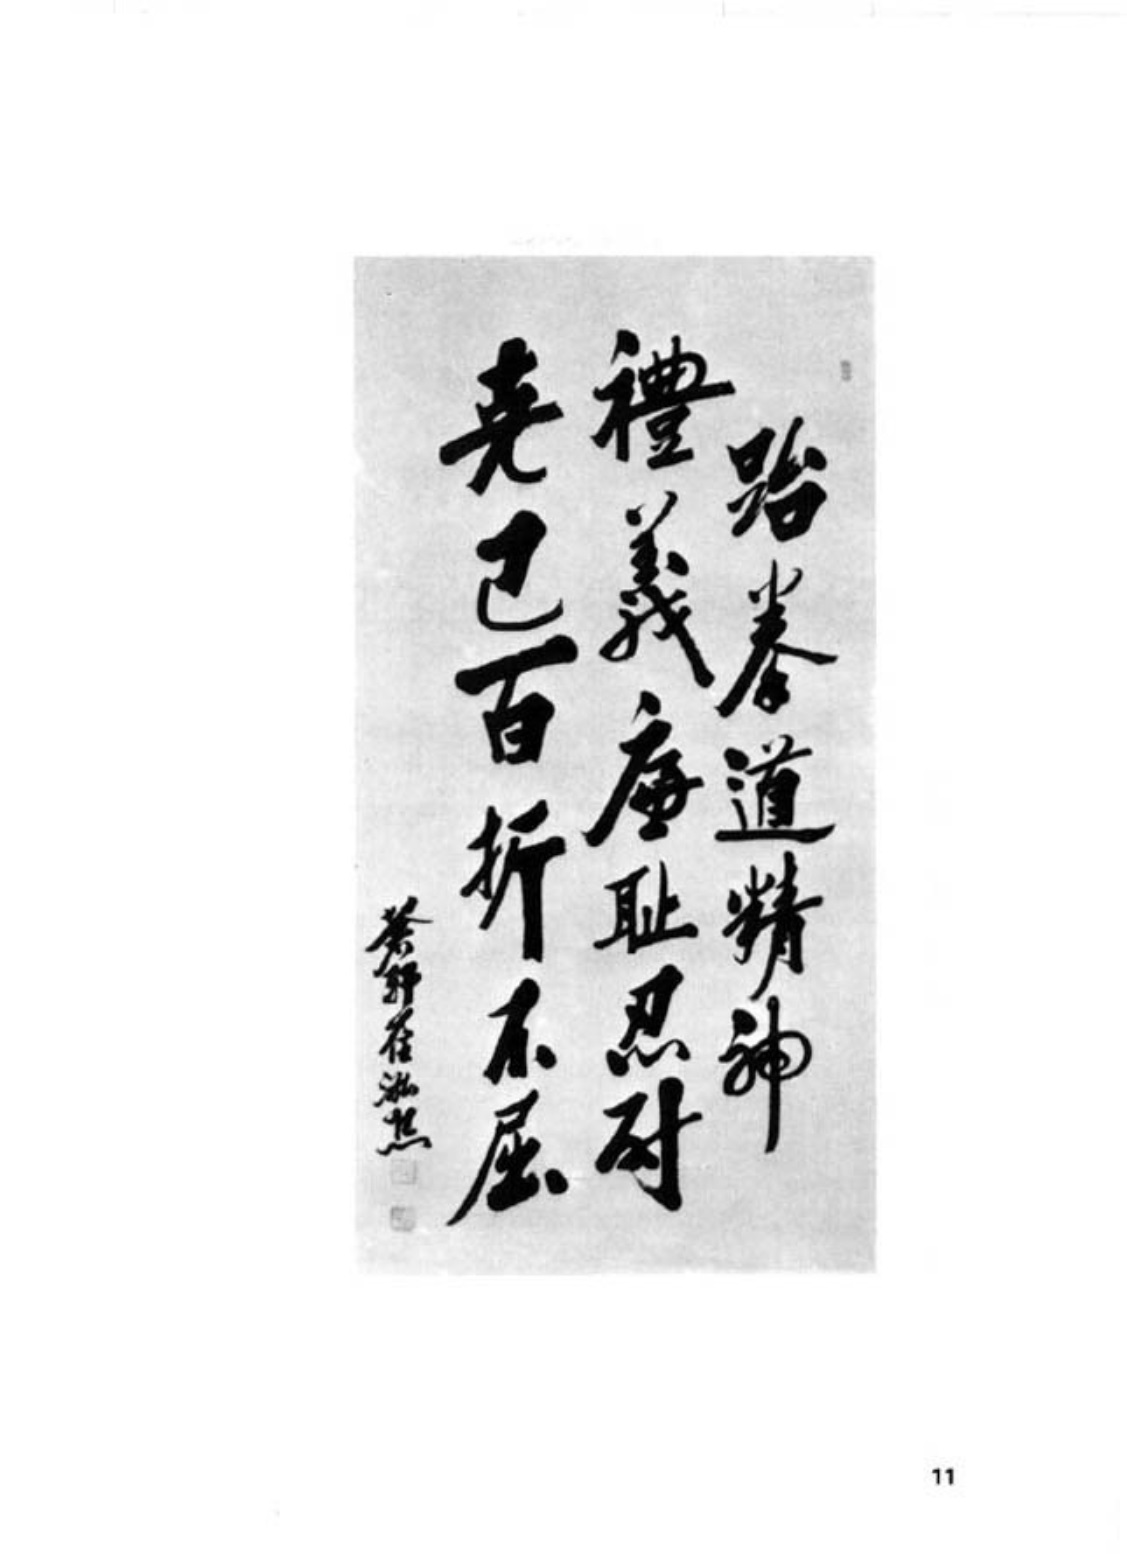 跆拳道精神
禮義廉耻忍耐
克己百折不屈
蒼軒崔泓熙
11